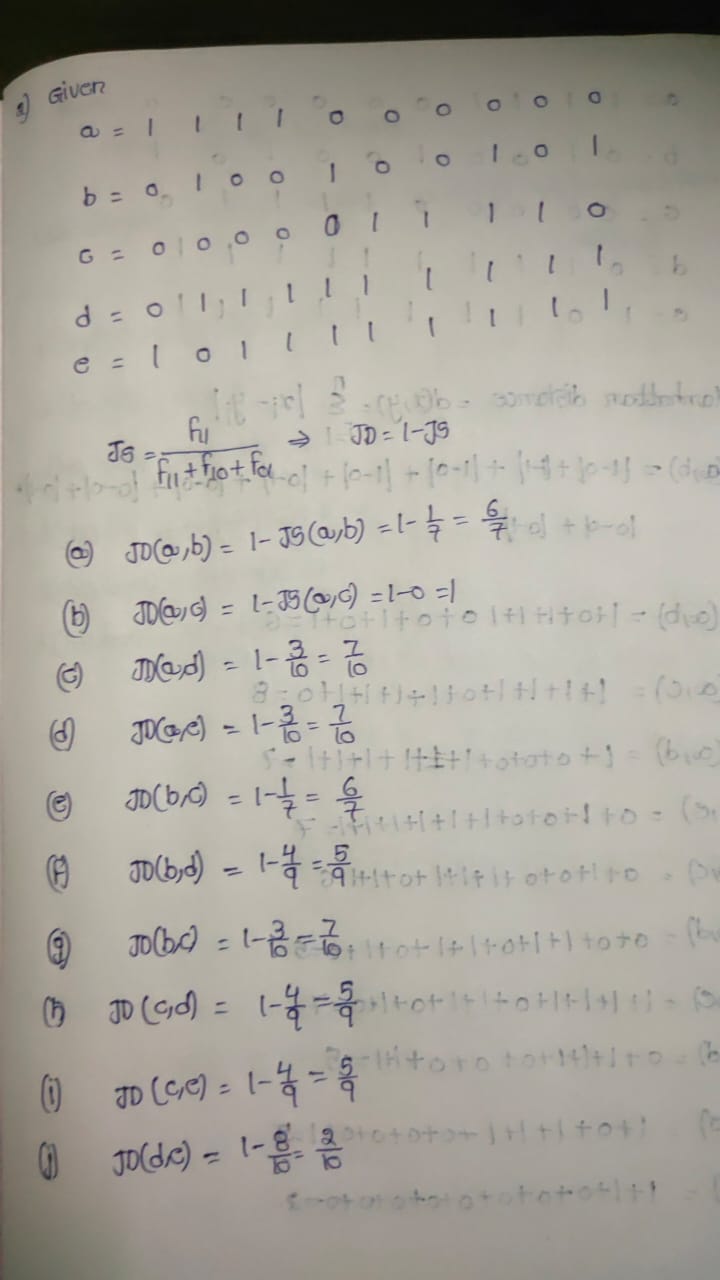 2) Given
a = 1 1 1 1 0 0 0 0 0 0
b = 0 1 0 0 1 0 0 1 0 1
c = 0 0 0 0 0 1 1 1 1 0
d = 0 1 1 1 1 1 1 1 1 1
e = 1 0 1 1 1 1 1 1 1 1
JS = f11 / f11 + f10 + f01 ⇒ JD = 1-JS
(a) JD(a,b) = 1-JS(a,b) = 1-1/7 = 6/7
(b) JD(a,c) = 1-JS(a,c) = 1-0 = 1
(c) JD(a,d) = 1-3/10 = 7/10
(d) JD(a,e) = 1-3/10 = 7/10
(e) JD(b,c) = 1-1/7 = 6/7
(f) JD(b,d) = 1-4/9 = 5/9
(g) JD(b,e) = 1-3/10 = 7/10
(h) JD(c,d) = 1-4/9 = 5/9
(i) JD(c,e) = 1-4/9 = 5/9
(j) JD(d,e) = 1-8/10 = 2/10